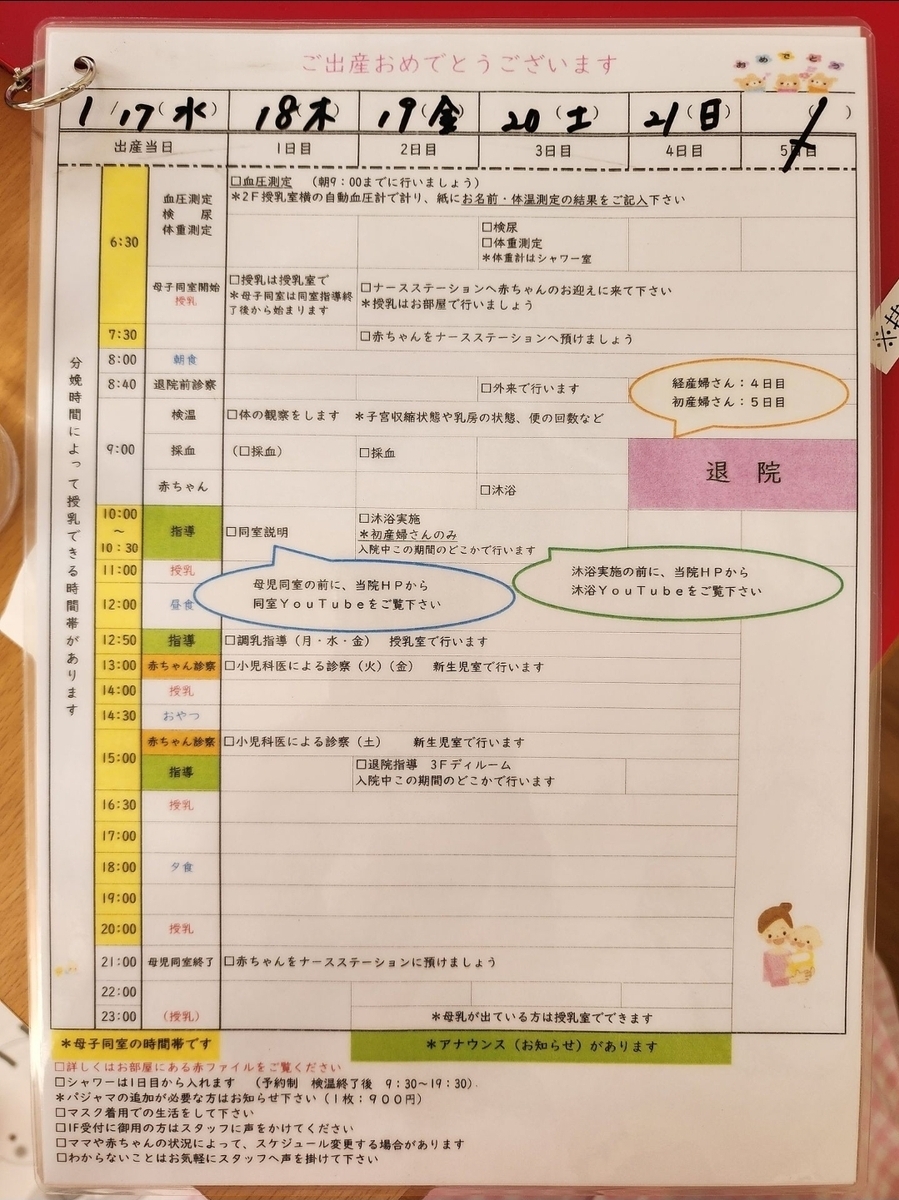 ご出産おめでとうございます
おめでとう
1/17(水) 18(木) 19(金) 20(土) 21(日) ( )
出産当日 1日目 2日目 3日目 4日目 5日目
分娩時間によって授乳できる時間帯があります
6:30
血圧測定
検 尿
体重測定
□血圧測定 (朝9:00までに行いましょう)
*2F授乳室横の自動血圧計で計り、紙にお名前・体温測定の結果をご記入下さい
□検尿
□体重測定
*体重計はシャワー室
母子同室開始
授乳
□授乳は授乳室で
*母子同室は同室指導終
了後から始まります
□ナースステーションへ赤ちゃんのお迎えに来て下さい
*授乳はお部屋で行いましょう
7:30 □赤ちゃんをナースステーションへ預けましょう
8:00 朝食
8:40 退院前診察 □外来で行います
経産婦さん:4日目
初産婦さん:5日目
9:00
検温 □体の観察をします *子宮収縮状態や乳房の状態、便の回数など
採血 (□採血) □採血
赤ちゃん □沐浴
退 院
10:00
~
10:30
指導 □同室説明
□沐浴実施
*初産婦さんのみ
入院中この期間のどこかで行います
11:00 授乳
母児同室の前に、当院HPから
同室YouTubeをご覧下さい
沐浴実施の前に、当院HPから
沐浴YouTubeをご覧下さい
12:00 昼食
12:50 指導 □調乳指導(月・水・金) 授乳室で行います
13:00 赤ちゃん診察 □小児科医による診察(火)(金) 新生児室で行います
14:00 授乳
14:30 おやつ
15:00
赤ちゃん診察 □小児科医による診察(土) 新生児室で行います
指導
□退院指導 3Fディルーム
入院中この期間のどこかで行います
16:30 授乳
17:00
18:00 夕食
19:00
20:00 授乳
21:00 母児同室終了 □赤ちゃんをナースステーションに預けましょう
22:00
23:00 (授乳) *母乳が出ている方は授乳室でできます
*母子同室の時間帯です *アナウンス(お知らせ)があります
□詳しくはお部屋にある赤ファイルをご覧ください
□シャワーは1日目から入れます (予約制 検温終了後 9:30~19:30)
*パジャマの追加が必要な方はお知らせ下さい(1枚:900円)
□マスク着用での生活をして下さい
□1F受付に御用の方はスタッフに声をかけてください
□ママや赤ちゃんの状況によって、スケジュール変更する場合があります
□わからないことはお気軽にスタッフへ声を掛けて下さい